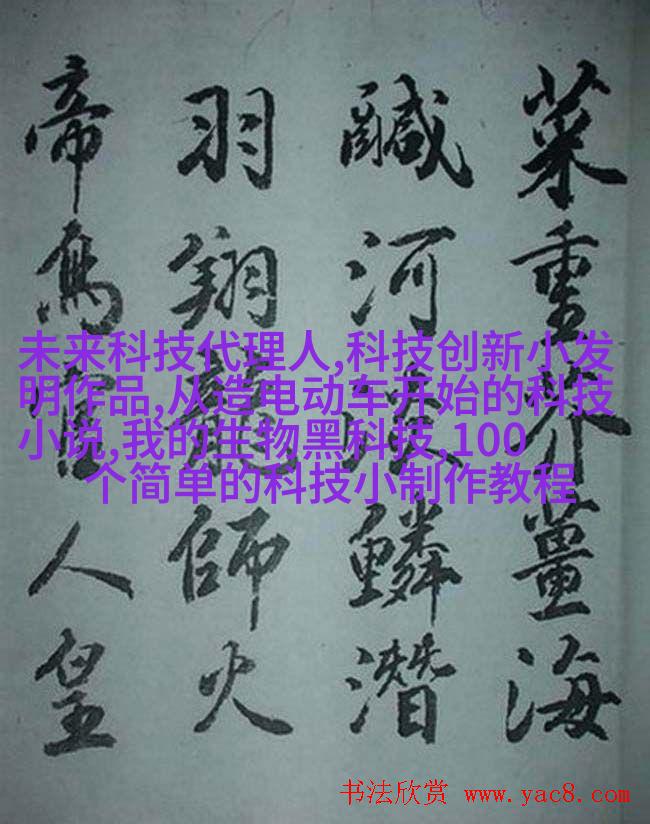 菜重芥薑海
鹹河淡鱗潛
羽翔龍師火
帝鳥官人皇
未来科技代理人,科技创新小发
明作品,从造电动车开始的科技
小说,我的生物黑科技,100
个简单的科技小制作教程
书法欣赏 www.yac8.com